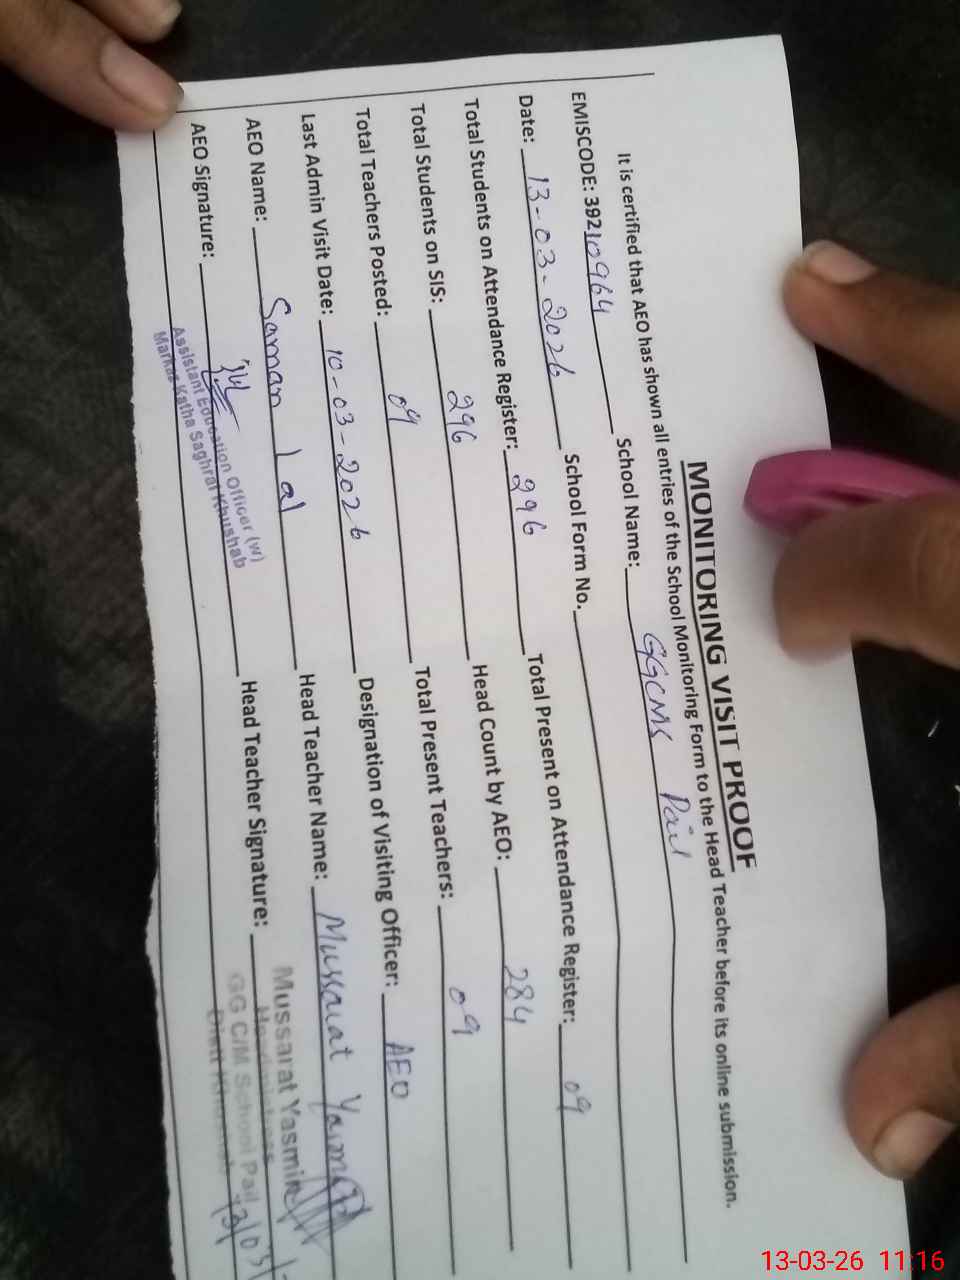 MONITORING VISIT PROOF
It is certified that AEO has shown all entries of the School Monitoring Form to the Head Teacher before its online submission.
EMISCODE: 39210964 School Name: GGCMS Pail
Date: 13-03-2026 School Form No.
Total Students on Attendance Register: 296 Total Present on Attendance Register: 09
Total Students on SIS: 296 Head Count by AEO: 284
Total Teachers Posted: 09 Total Present Teachers: 09
Last Admin Visit Date: 10-03-2026 Designation of Visiting Officer: AEO
AEO Name: Saman Lal Head Teacher Name: Mussarat Yasmin
AEO Signature: Head Teacher Signature:
Assistant Education Officer (W)
Markaz Katha Saghral Khushab
Mussarat Yasmin
Headmistress
GG C/M School Pail
Distt Khushab
13-03-26 11:16